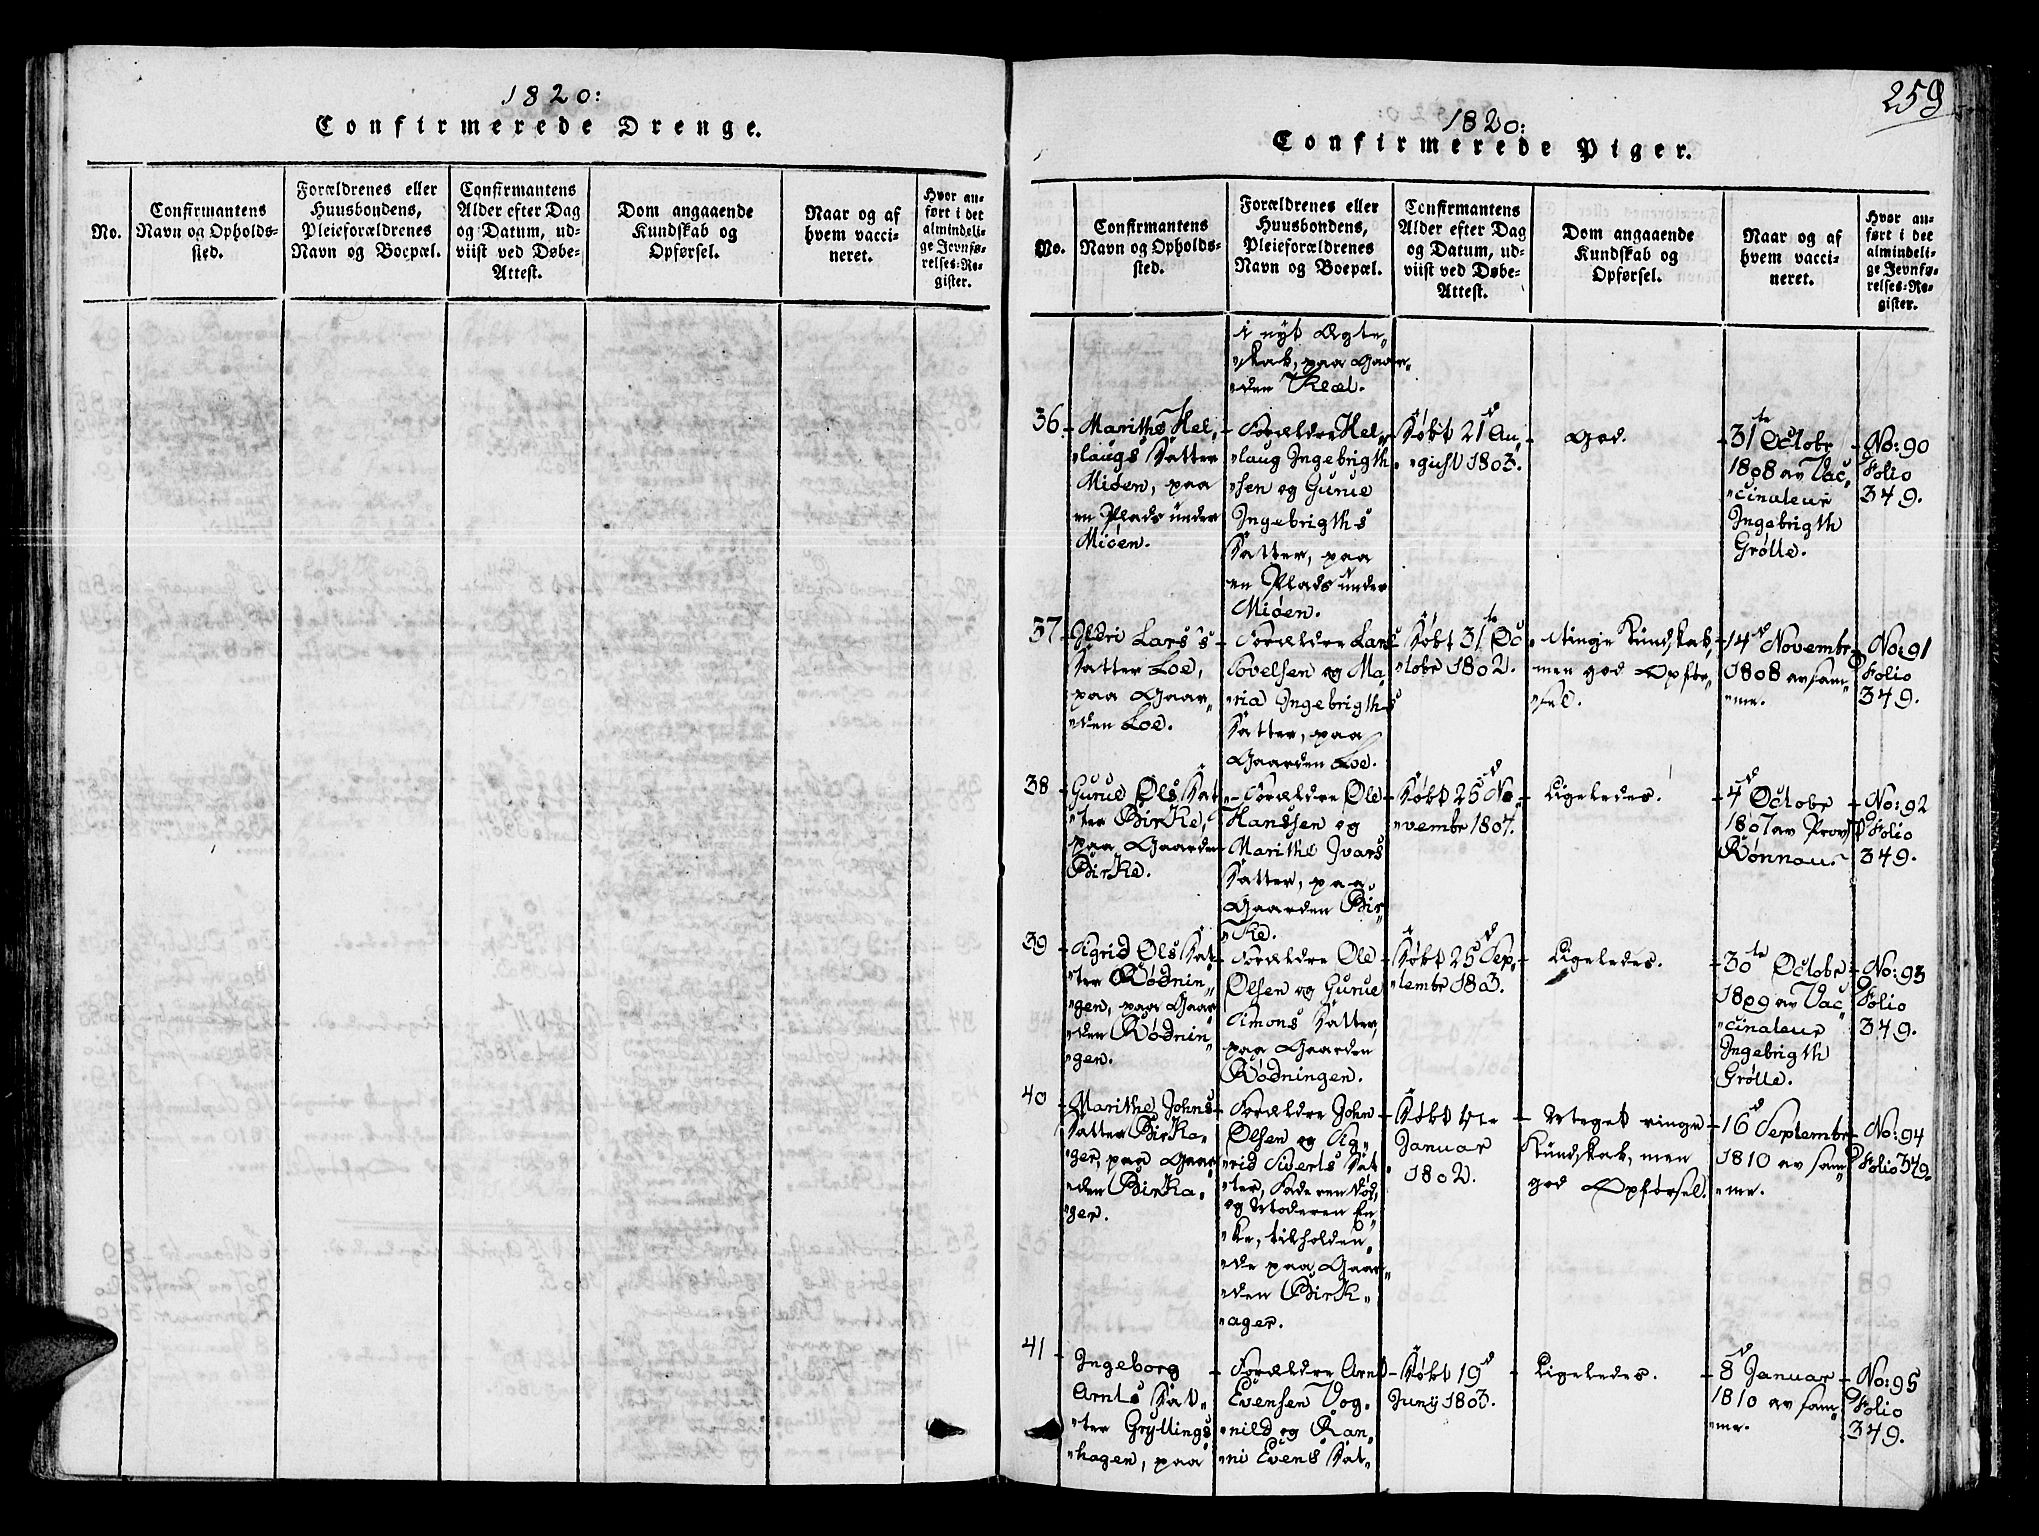 1820:
Confirmerede Drenge.
No.
Confirmantens
Navn og Opholds-
sted.
Forældrenes eller
Huusbondens,
Pleieforældrenes
Navn og Boepæl.
Confirmantens
Alder efter Dag
og Datum, ud-
viist ved Døbe-
Attest.
Dom angaaende
Kundskab og
Opførsel.
Naar og af
hvem vacci-
neret.
Hvor an-
ført i det
almindeli-
ge Jevnfø-
relses-Re-
gister.
259
1820:
Confirmerede Piger.
No.
Confirmantens
Navn og Opholds-
sted.
Forældrenes eller
Huusbondens,
Pleieforældrenes
Navn og Boepæl.
Confirmantens
Alder efter Dag
og Datum, ud-
viist ved Døbe-
Attest.
Dom angaaende
Kundskab og
Opførsel.
Naar og af
hvem vacci-
neret.
Hvor an-
ført i det
almindeli-
ge Jevnfø-
relses-Re-
gister.
i nyt Ægte„
„skab, paa Gaar„
„den
36
Mariths Hel„
„laugs Datter
Mioen, paa
en Plads under
Mioen.
Forældre Hel„
„laug Ingebrigth
„sen og Gurue
Ingebrigths
Datter, paa
en Plads under
Mioen.
Døbt 21 Au„
„gust 1803.
God.
31te Octobr
1808 av Vac„
„cinateur
Ingebrigth
Grølle.
No: 90
Folio
349.
37
Ildri Lars's
Datter Loe,
paa Gaar„
„den Loe.
Forældre Lars
Tovelsen og Ma„
„ria Ingebrigths
Datter, paa
Gaarden Loe.
Døbt 31te Oc
„tobr 1802.
Ringe Kundskab,
men god Opfør„
„sel.
14d Novembr
1808 av sam„
„me.
No: 91
Folio
349.
38
Gurue Ols Dat
„ter Birke,
paa Gaarden
Birke.
Forældre Ole
Hanssen og
Marithe Ivars
Datter, paa
Gaarden Bir„
„ke.
Døbt 25d No„
„vembr 1804.
Ligeledes.
4d Octobr
1807 av Provst
Rønnau.
No: 92
Folio
349.
39
Sigrid Ols Dat„
„ter Rødnin„
„gen, paa Gaar
„den Rødnin„
„gen.
Forældre Ole
Olsen og Gurue
Simons Datter,
paa Gaarden
Rødningen.
Døbt 25d Sep„
„tembr 1803.
Ligeledes.
30te Octobr
1809 av Vac„
„cinateur
Ingebrigth
Grølle.
No: 93
Folio
349.
40
Marithe Johns
Datter Birka„
„ger, paa Gaar
„den Birka„
„ger.
Forældre John
Olsen og Sig„
„rid Siverts Dat
„ter, Faderen Død,
og Moderen En„
„ke, tilholden„
„de paa Gaar„
„den Birk„
„ager.
Døbt
Januar
1802.
Meget ringe
Kundskab, men
god Opførsel.
16d Septembr
1810 av sam„
„me.
No: 94
Folio 349.
41
Ingeborg
Arnts Dat„
„ter Gryllings
„hagen, paa
Forældre Arnt
Evensen Vog„
„nild og Ran„
„ni Evens Dat„
Døbt 19d
Junÿ 1803.
Ligeledes.
8d Januar
1810 av sam„
„me.
No: 95
Folio
349.